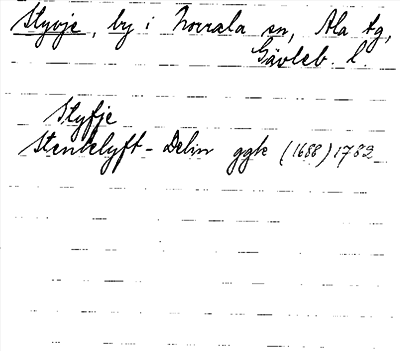 Styvje, by i Norrala sn, Ala tg,
Gävleb. l.
Styfje
Stenbelyft-Delin ggk (1688) 1782